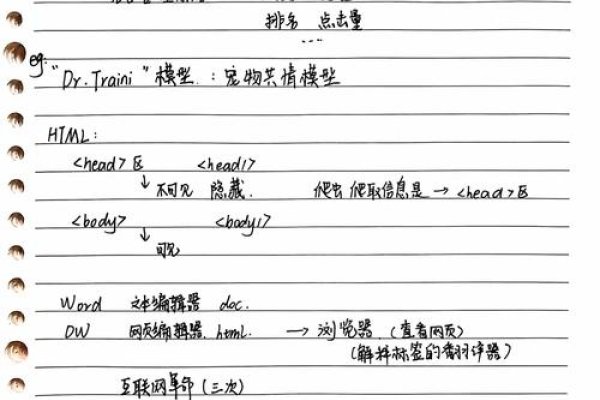 排名 点击量
....
eg: "Dr.Traini"模型.:宠物共情模型
HTML:
<head>区 <head/>
↓不可见 隐藏. 爬虫爬取信息是→<head>区
<body> <body/>
↓可见
Word 文本编辑器 doc.
DW 网页编辑器.html. →浏览器.(查看网页)
(解释标签的翻译器)
互联网革命(三次)